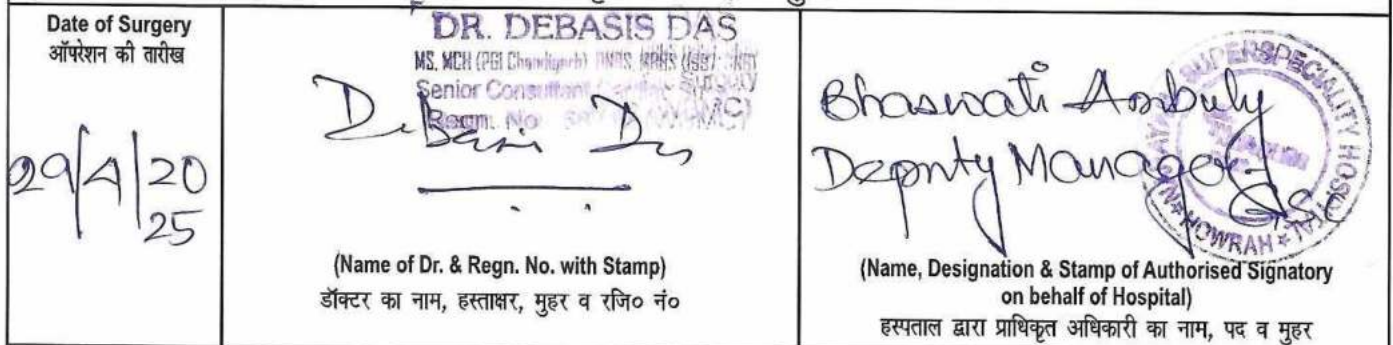 Date of Surgery
ऑपरेशन की तारीख
29/4/20
25
DR. DEBASIS DAS
MS, MCH (PGI Chandigarh)
Senior Consultant
Regn. No
Debasis Das
(Name of Dr. & Regn. No. with Stamp)
डॉक्टर का नाम, हस्ताक्षर, मुहर व रजि० नं०
Bhaswati
Deputy Manager
SUPERSPECIALITY HOSPITAL
HOWRAH
(Name, Designation & Stamp of Authorised Signatory
on behalf of Hospital)
हस्पताल द्वारा प्राधिकृत अधिकारी का नाम, पद व मुहर